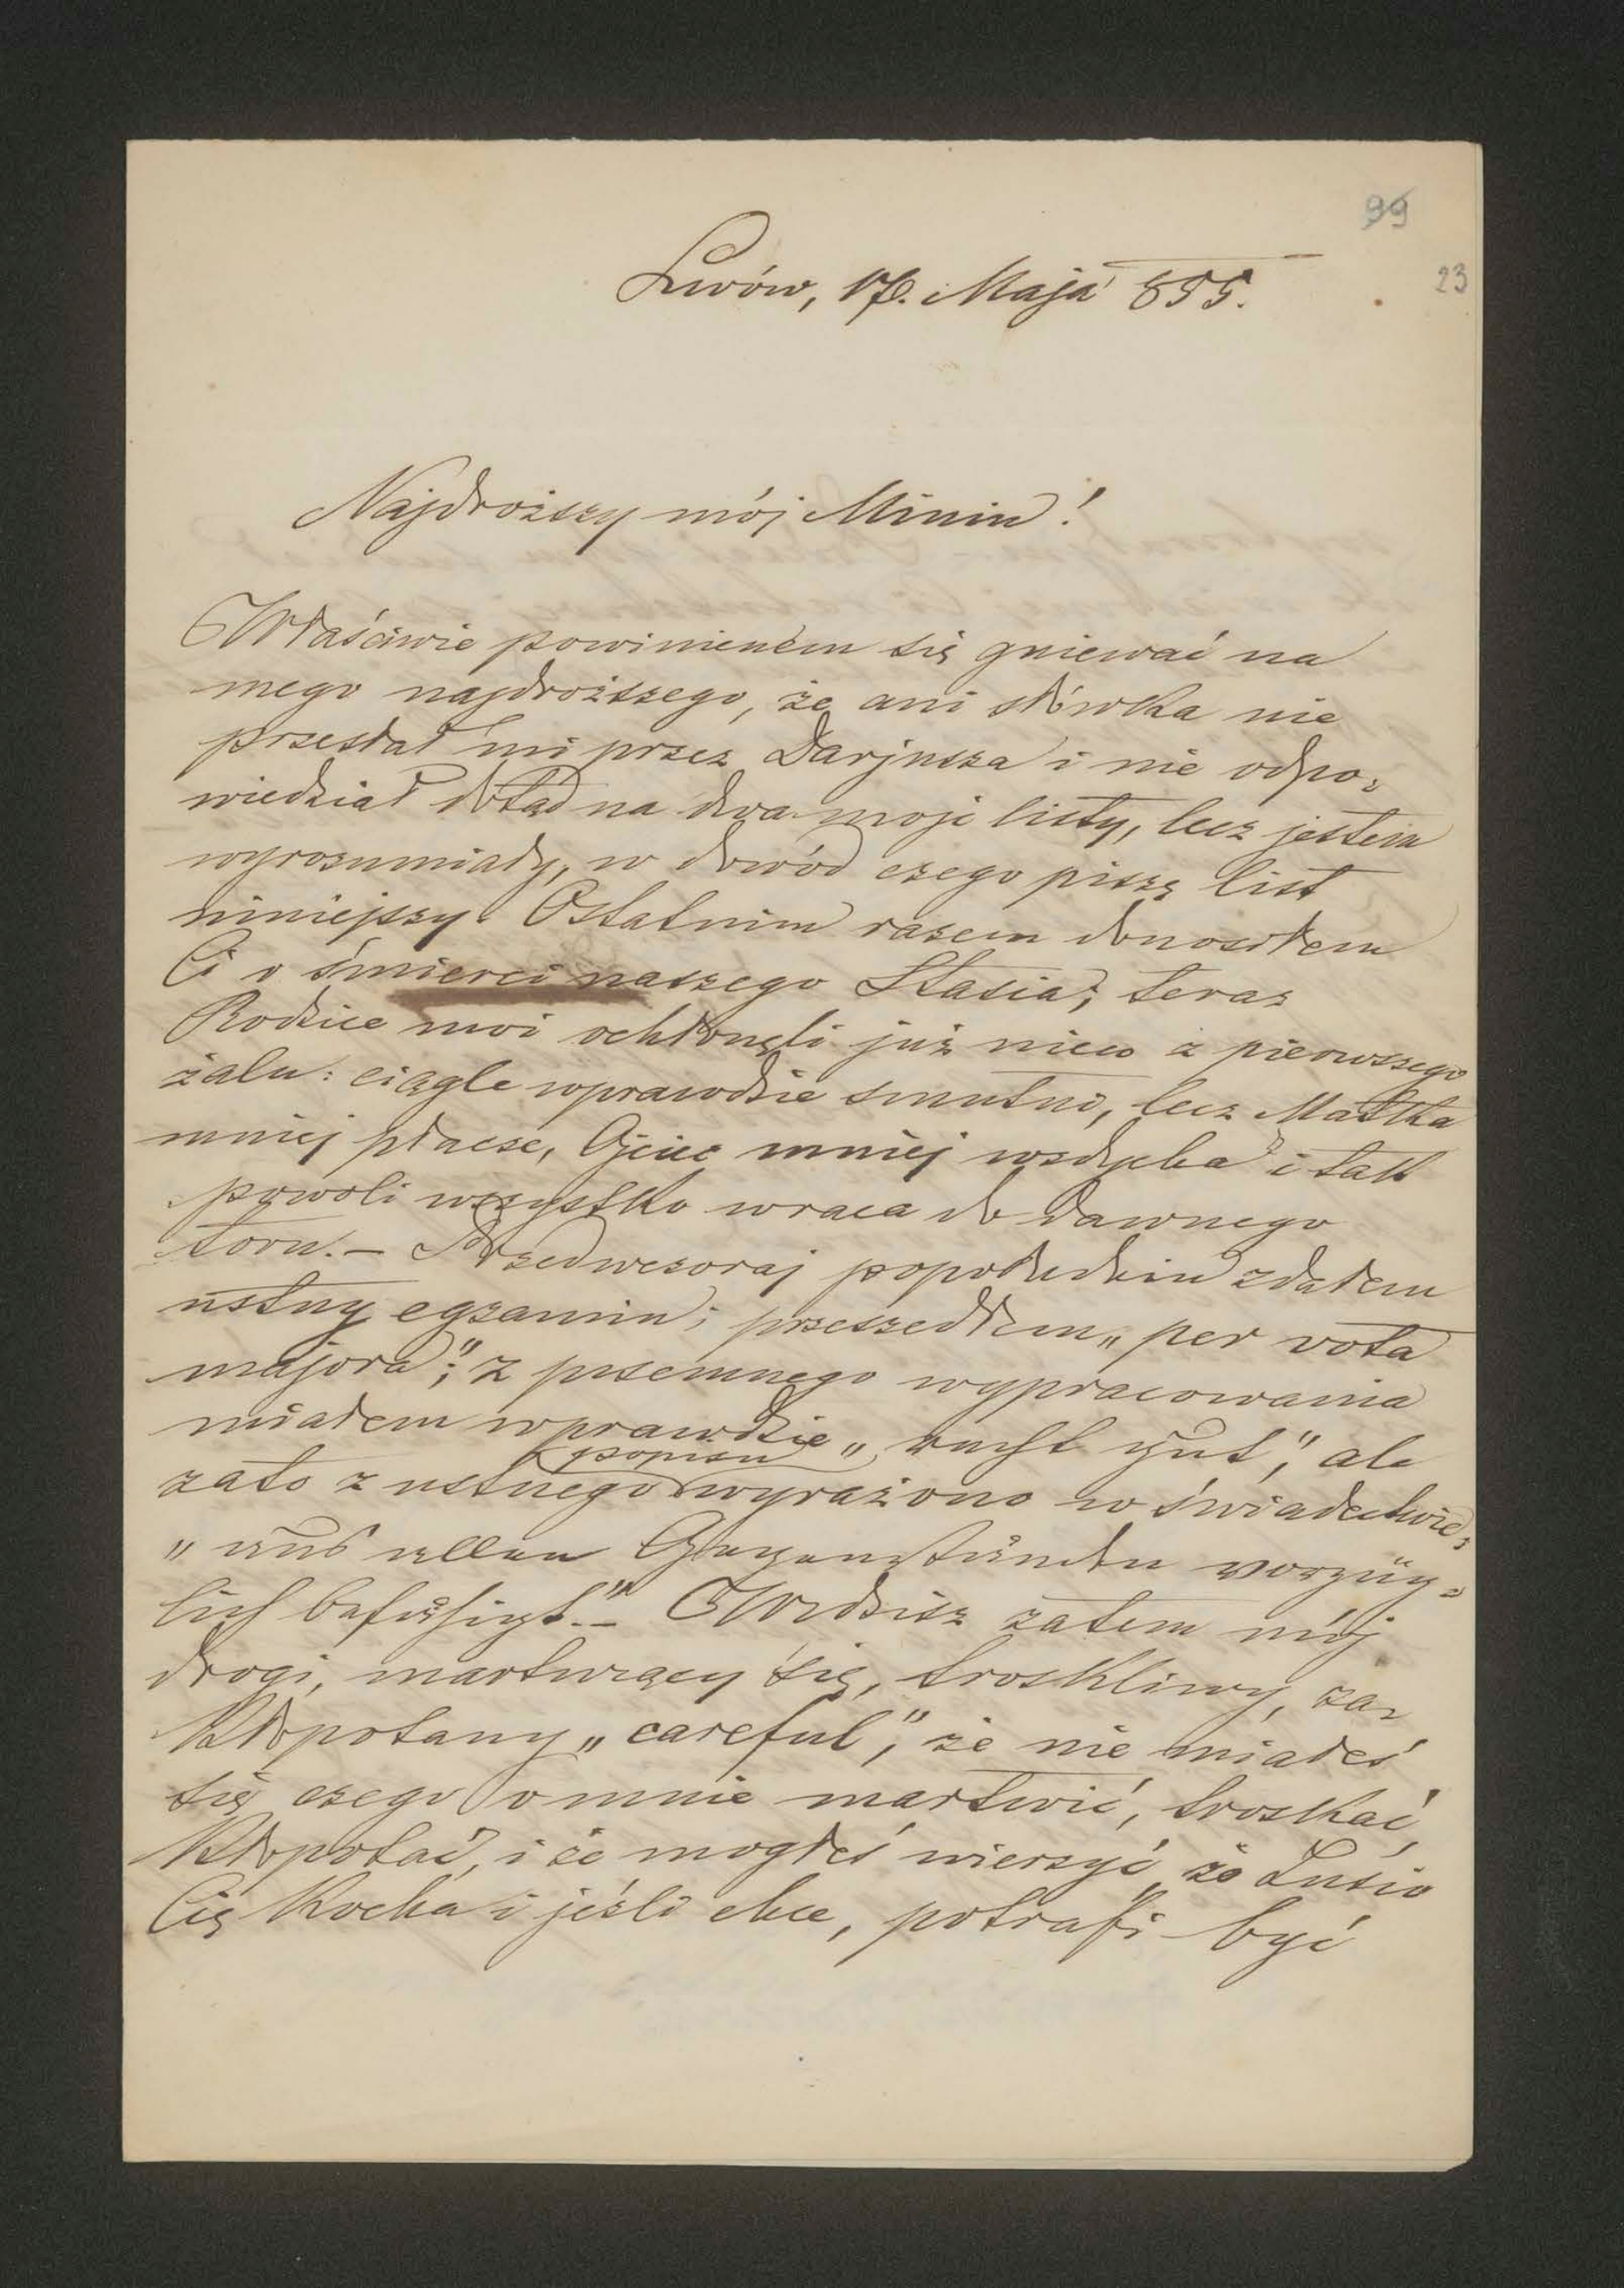 99
23
Lwów, 17. Maja 855.
Najdroższy mój Miniu!
Właściwie powinienem się gniewać na
mego najdroższego, że ani słówka nie
przesłał mi przez Darjusza i nie odpo-
wiedział dotąd na dwa moje listy, lecz jestem
wyrozumiały, w dowód czego piszę list
niniejszy. Ostatnim razem donosiłem
Ci o śmierci naszego Stasia; teraz
Rodzice moi ochłonęli już nieco z pierwszego
żalu: ciągle wprawdzie smutni, lecz Matka
mniej płacze, Ojciec mniej wzdycha i tak
powoli wszystko wraca do dawnego
toru. – Przedwczoraj popołudniu zdałem
ustny egzamin; przeszedłem „per vota
majora"; z pisemnego wypracowania
miałem wprawdzie „recht gut", ale
popisu
zato z ustnego wyrażono w świadectwie:
„aus allen Gegenständen vorzüg-
lich befähigt." – Widzisz zatem mój
drogi, martwiący się, troskliwy, za-
kłopotany „careful", że nie miałeś
się czego o mnie martwić, troskać,
kłopotać, i że mogłeś wierzyć, że Lusio
Cię kocha i jeśli chce, potrafi być